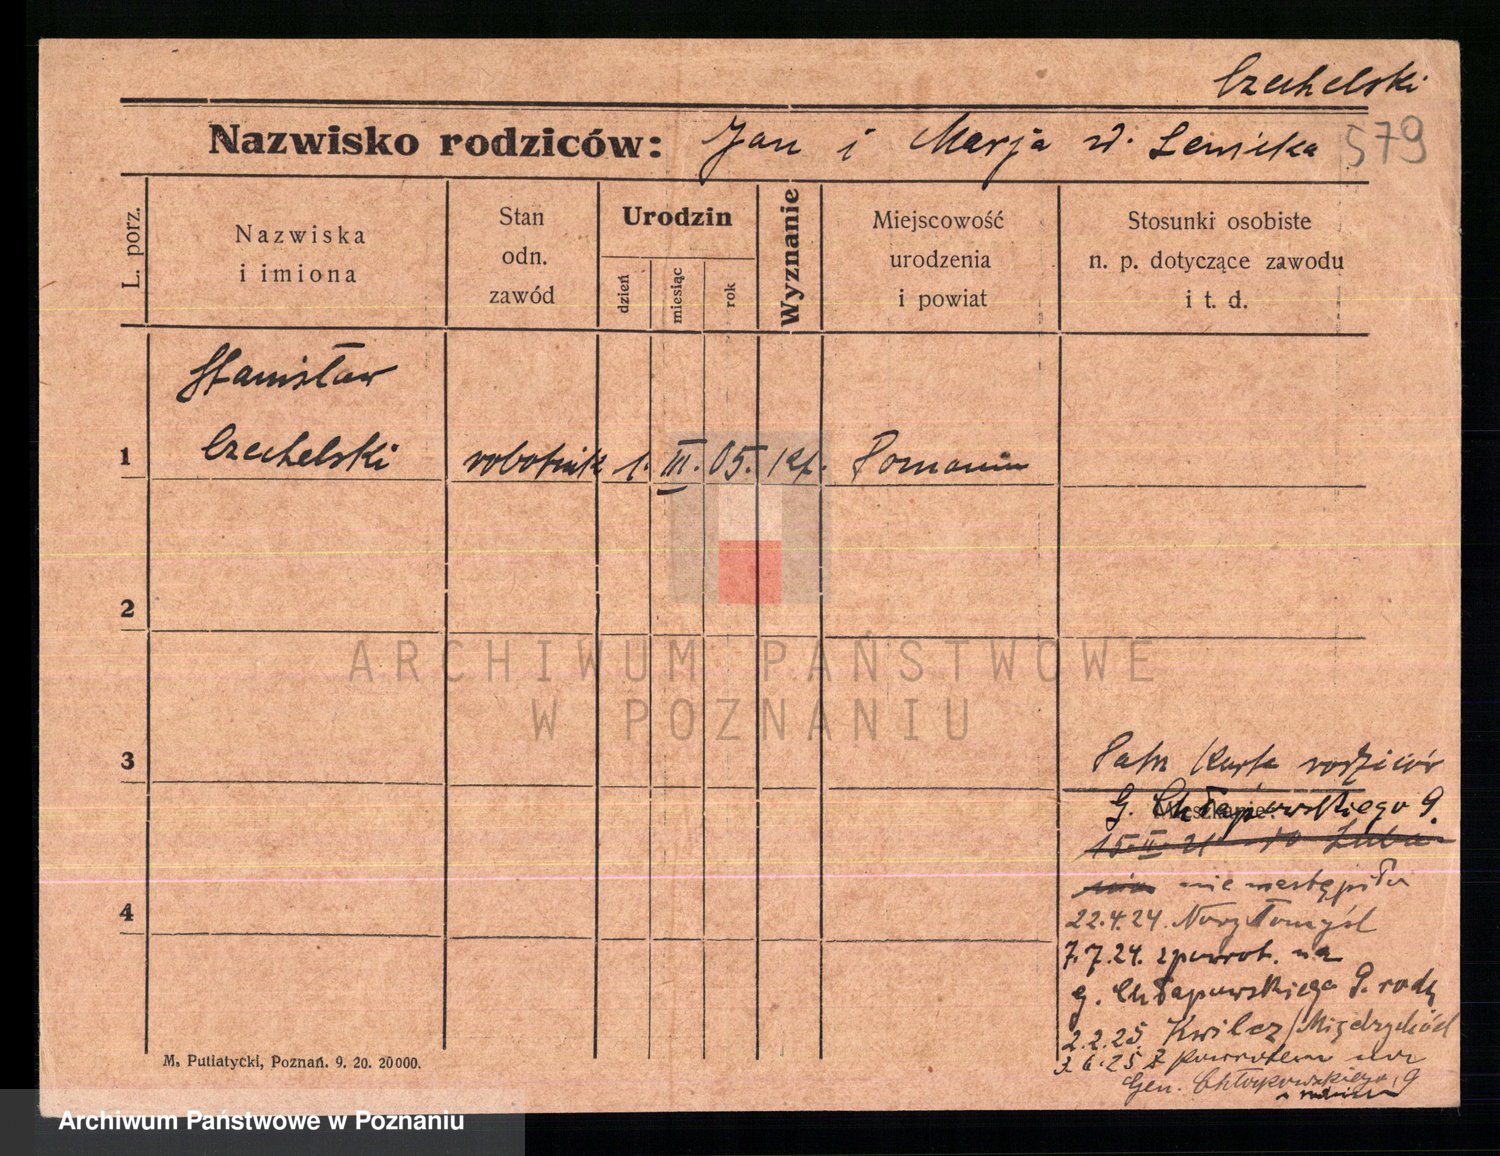 Czechelski
Nazwisko rodziców: Jan i Marja 579
L. porz.
Nazwiska
i imiona
Stan
odn.
zawód
Urodzin
dzień
miesiąc
rok
Wyznanie
Miejscowość
urodzenia
i powiat
Stosunki osobiste
n. p. dotyczące zawodu
i t. d.
Stanisław
1 Czechelski robotnik 1. III. 05. kt.
2
ARCHIWUM PAŃSTWOWE
W POZNANIU
3
Patrz Karta rodziców
G. Chłapowskiego 9.
Mieszkanie:
15. II 21
nie nastąpiło
4
22.4.24. Nowy Tomyśl
7.7.24. zpowrot. na
g. Chłapowskiego 9. rodz
2.2.25 Kwilcz/Międzychód
3.6.25 z powrotem na
Gen. Chłapowskiego 9
M. Putiatycki, Poznań. 9. 20. 20000.
Archiwum Państwowe w Poznaniu